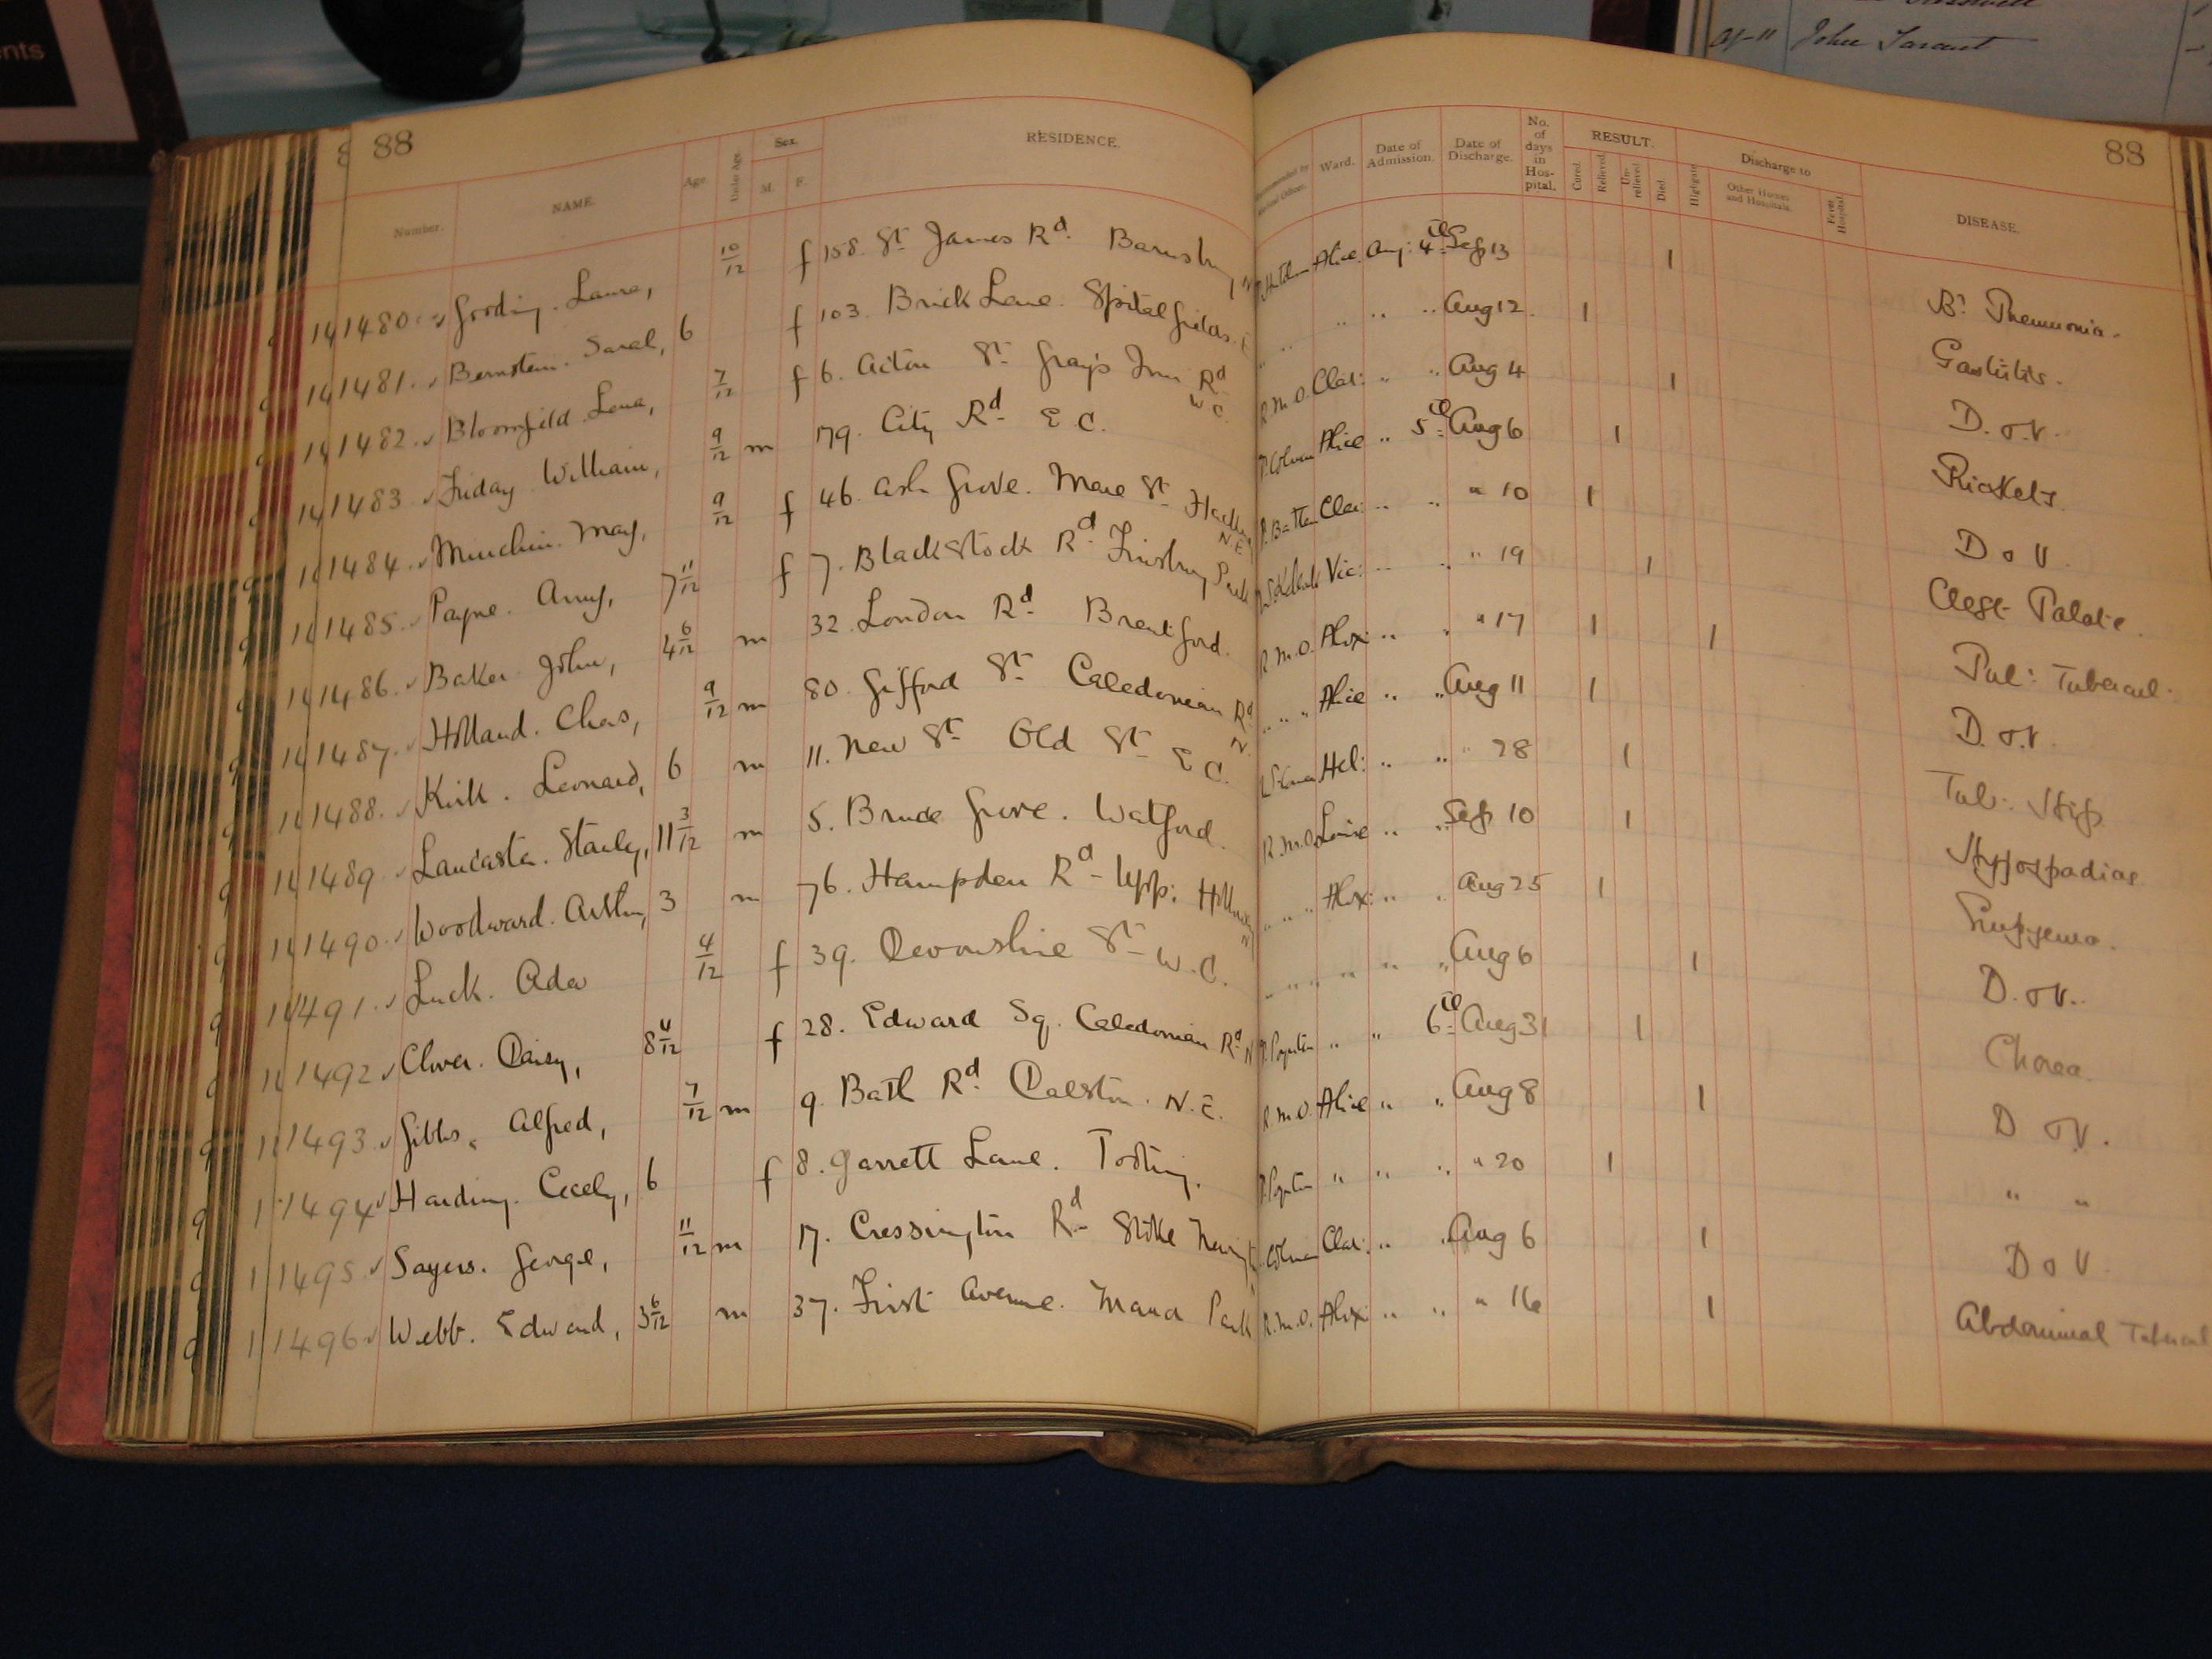 nts
John Tarant
88
88
Number. NAME. Age. Under Age. Sex. M. F. RESIDENCE.
Ward. Date of Admission. Date of Discharge. No. of days in Hospital. RESULT. Cured. Relieved. Unrelieved. Died. Discharge to Highgate Other Homes and Hospitals. Fever Hospital. DISEASE.
1480 Gooding. Laura, 10/12 f 158. St James Rd Barnsbury Alice Aug: 4th Sep 13 1 Br Pneumonia.
1481. Bernstein. Sarah, 6 f 103. Brick Lane. Spitalfields. " " Aug 12. 1 Gastritis.
1482. Bloomfield Lena, 7/12 f 6. Acton St Grays Inn Rd W C. R.M.O. Clar: " " Aug 4 1 D. & V.
1483 Friday William, 9/12 m 79. City Rd E.C. Alice " 5th Aug 6 1 Rickets
1484. Minchin. May, 9/12 f 46. Ash Grove. Mare St Hackney N.E. Batten Clar: " " " 10 1 D & V.
1485. Payne. Amy, 7 11/12 f 7. Blackstock Rd Finsbury Park Vic: " " " 19 1 Cleft Palate.
1486. Baker John, 4 6/12 m 32. London Rd Brentford. R.M.O. Alex: " " " 17 1 1 Pul: Tubercul:
1487. Holland. Chas, 9/12 m 80. Gifford St Caledonian Rd N. " " Alice " " Aug 11 1 D. & V.
1488. Kirk. Leonard, 6 m 11. New St Old St E C. Hel: " " " 28 1 Tub: Hip
1489. Lancaster. Stanley, 11 3/12 m 5. Bruce Grove. Watford. R.M.O. Louise " " Sep 10 1 Hypospadias
1490. Woodward. Arthur, 3 m 76. Hampden Rd Upp: Holloway N " " Alex: " " Aug 25 1 Empyema.
1491. Luck. Ada 4/12 f 39. Devonshire St W.C. " " " " " Aug 6 1 D. & V.
1492 Clover. Daisy, 8 4/12 f 28. Edward Sq. Caledonian Rd N Poynton " " 6th Aug 31 1 Chorea.
1493 Gibbs. Alfred, 7/12 m 9. Bath Rd Dalston. N.E. R.M.O. Alice " " Aug 8 1 D & V.
1494 Harding. Cecely, 6 f 8. Garrett Lane. Tooting. Poynton " " " " 20 1 " "
1495 Sayers. George, 11/12 m 17. Cressington Rd Stoke Newington Colman Clar: " " Aug 6 1 D & V.
1496 Webb. Edward, 3 6/12 m 37. First Avenue. Manor Park R.M.O. Alex: " " " 16 1 Abdominal Tubercul